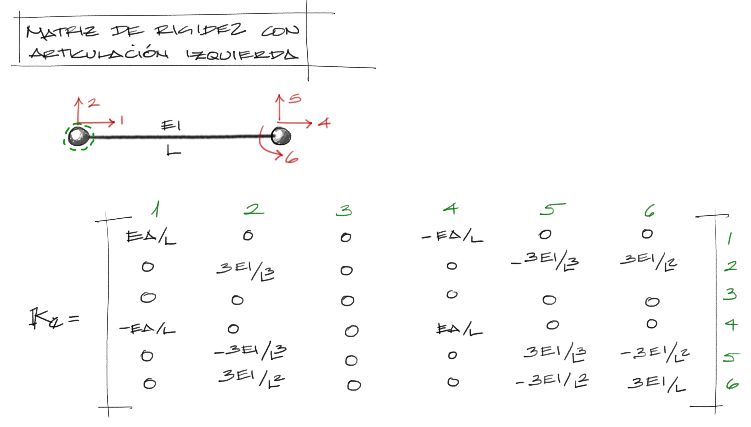 MATRIZ DE RIGIDEZ CON
ARTICULACIÓN IZQUIERDA
2 5
1 EI 4
L 6
1 2 3 4 5 6
EA/L 0 0 -EA/L 0 0 1
0 3EI/L3 0 0 -3EI/L3 3EI/L2 2
0 0 0 0 0 0 3
-EA/L 0 0 EA/L 0 0 4
0 -3EI/L3 0 0 3EI/L3 -3EI/L2 5
0 3EI/L2 0 0 -3EI/L2 3EI/L 6